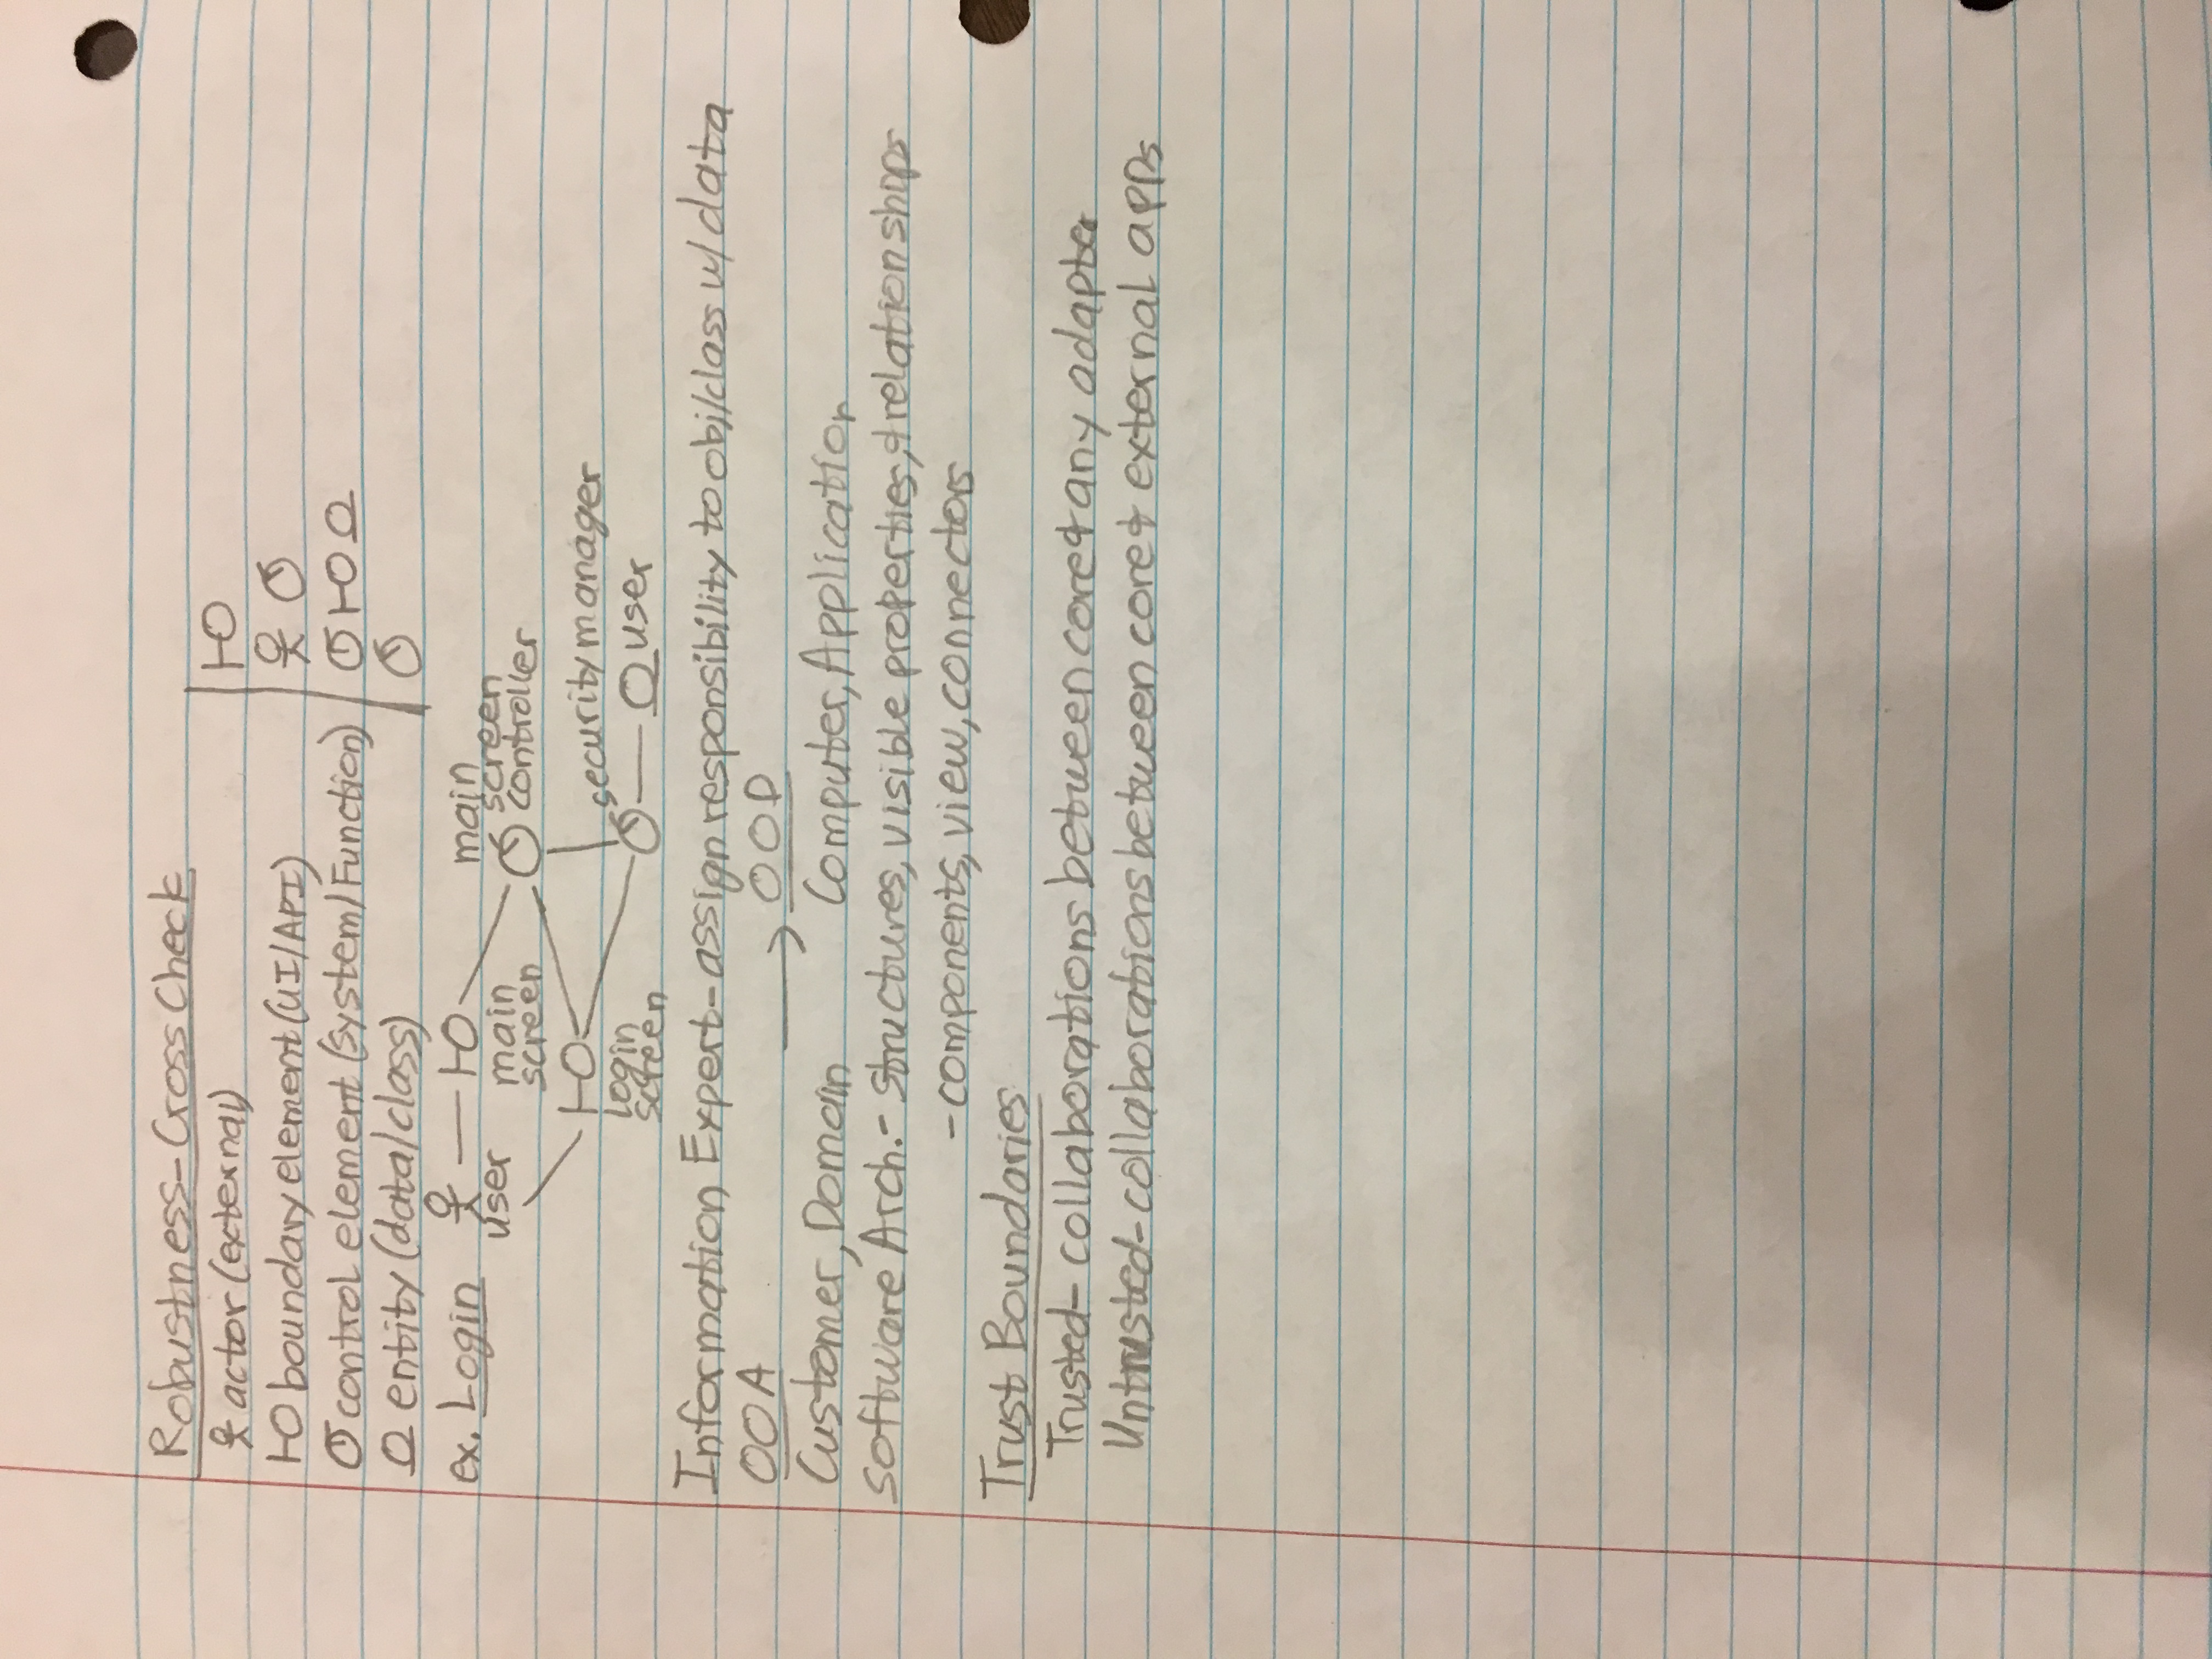 Robustness-Cross Check
actor (external)
boundary element (UI/API)
control element (System/Function)
entity (data/class)
ex. Login
user
main
screen
main
screen
controller
login
screen
security manager
user
Information Expert-assign responsibility to obj/class w/ data
OOA → OOD
Customer, Domain Computer, Application
Software Arch.- structures, visible properties, & relationships
-components, view, connectors
Trust Boundaries
Trusted- collaborations between core & any adapter
Untrusted-collaborations between core & external apps